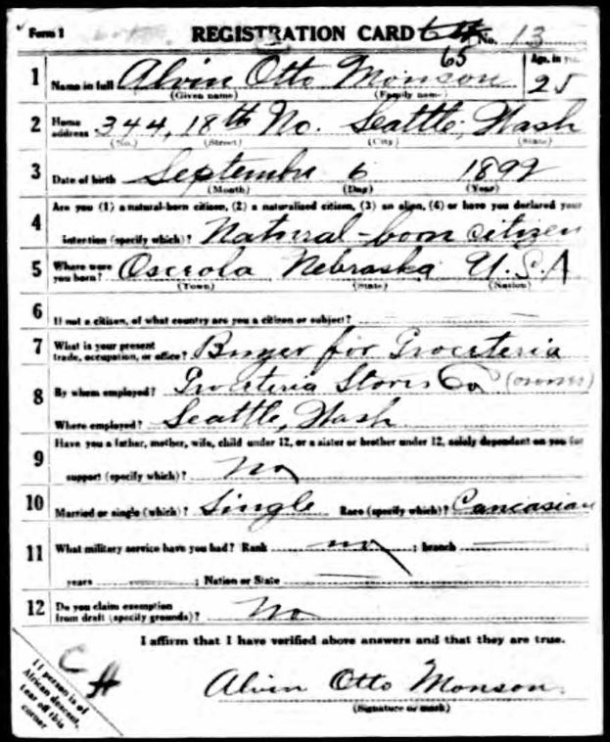 Form 1 REGISTRATION CARD No. 13
65
1 Name in full Alvin Otto Monson Age, in yrs. 25
(Given name) (Family name)
2 Home address 344, 18th No. Seattle, Wash
(No.) (Street) (City) (State)
3 Date of birth September 6 1892
(Month) (Day) (Year)
4 Are you (1) a natural-born citizen, (2) a naturalized citizen, (3) an alien, (4) or have you declared your
intention (specify which)? Natural-born citizen
5 Where were you born? Osceola Nebraska U.S.A
(Town) (State) (Nation)
6 If not a citizen, of what country are you a citizen or subject?
7 What is your present trade, occupation, or office? Buyer for Groceteria
8 By whom employed? Groceteria Stores Co (owner)
Where employed? Seattle, Wash
9 Have you a father, mother, wife, child under 12, or a sister or brother under 12, solely dependent on you for
support (specify which)? No
10 Married or single (which)? Single Race (specify which)? Caucasian
11 What military service have you had? Rank no ; branch
years ; Nation or State
12 Do you claim exemption from draft (specify grounds)? No
I affirm that I have verified above answers and that they are true.
Alvin Otto Monson
(Signature or mark)
If person is of
African descent,
tear off this
corner